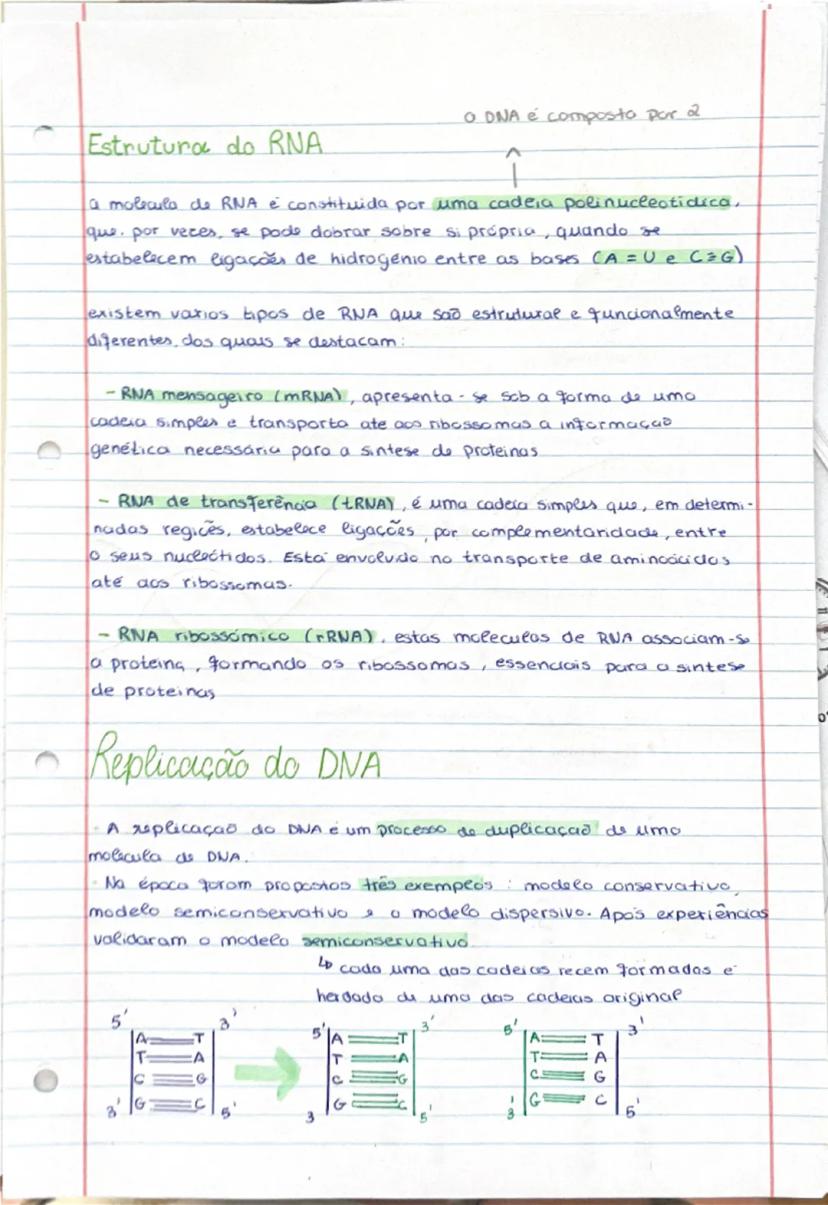 O DNA é composto por 2
Estrutura do RNA
a molecula de RNA é constituida por uma cadeia polinucleotidica,
que, por vezes, se pode dobrar sobre si própria, quando se
estabelecem ligações de hidrogénio entre as bases (A = U e C≡G)
existem varios tipos de RNA que são estrutural e funcionalmente
diferentes, dos quais se destacam:
- RNA mensageiro (mRNA), apresenta-se sob a forma de uma
cadeia simples e transporta ate aos ribossomas a informação
genética necessária para a sintese de proteinas
- RNA de transferência (tRNA), é uma cadeia simples que, em determi-
nadas regiões, estabelece ligações, por complementaridade, entre
o seus nucleótidos. Está envolvido no transporte de aminoácidos
até aos ribossomas.
- RNA ribossómico (rRNA), estas moleculas de RNA associam-se
a proteina, formando os ribossomas, essenciais para a sintese
de proteinas
Replicação do DNA
· A replicação do DNA é um processo de duplicação de uma
molecula de DNA.
· Na época foram propostos três exemplos: modelo conservativo,
modelo semiconservativo e o modelo dispersivo. Após experiências
validaram o modelo semiconservativo
↳ cada uma das cadeias recem formadas é
herdado de uma das cadeias original
5' 3' 5' 3' 5' 3'
A T A T A T
T A T A T A
C G C G C G
G C G C G C
3' 5' 3 5' 3' 5'